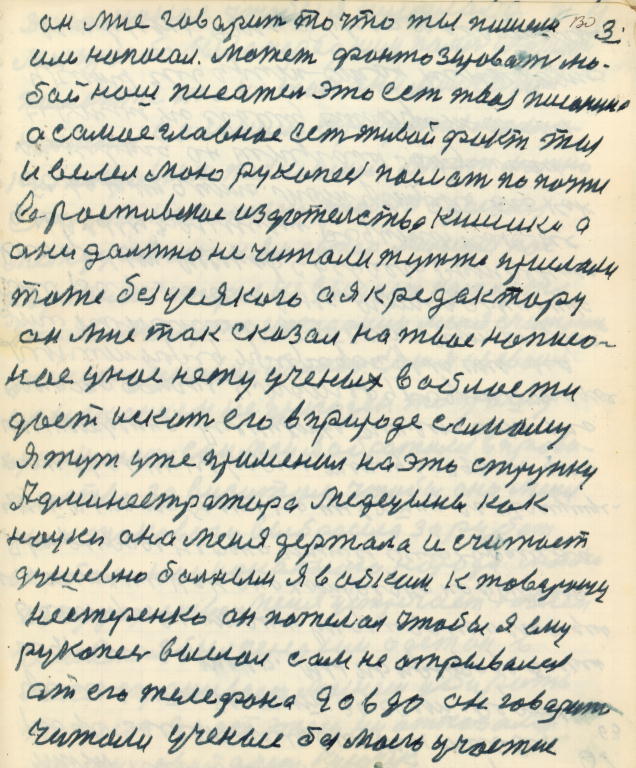 он мне говарит то что ты пишеш 130 3.
или нописал. может фонтозировать лю-
бой нош писател это ест твоя писанина
а самое главное ест живой факт ты
и велел мою рукопес послат по почти
в ростовское издотелство книшка а
они должно не читали тутже прислали
тоже без усякого а я к редактору
он мне так сказал на твое написо-
ное у нас нету ученых в облости
дает искат его в природе самому
Я тут уже применил на это струнку
Админестратора медецына как
науки она меня держала и считает
душевно болным Я в обком к товарищу
нестеренко он пожелал чтобы я ему
рукопес выслал сам не отрывался
от его телефона говдо он говарит
читали ученые без моего участие